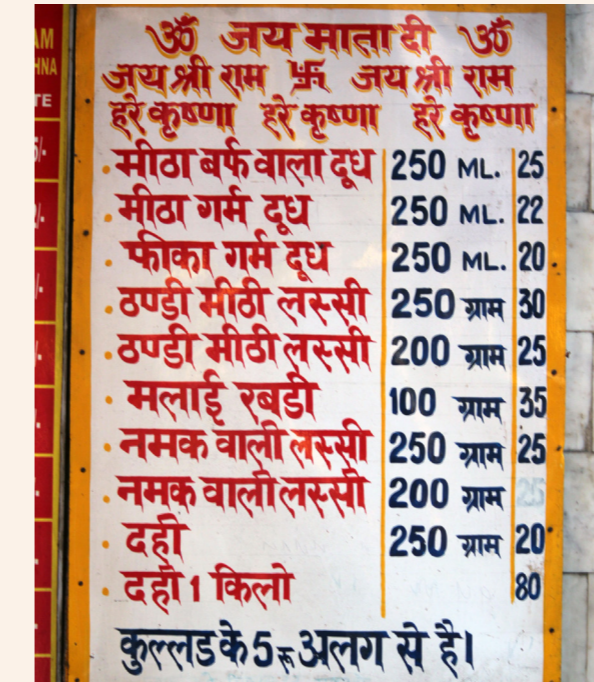 ॐ जय माता दी ॐ
जय श्री राम 卐 जय श्री राम
हरे कृष्णा हरे कृष्णा हरे कृष्णा
मीठा बर्फ वाला दूध 250 ML. 25
मीठा गर्म दूध 250 ML. 22
फीका गर्म दूध 250 ML. 20
ठण्डी मीठी लस्सी 250 ग्राम 30
ठण्डी मीठी लस्सी 200 ग्राम 25
मलाई रबडी 100 ग्राम 35
नमक वाली लस्सी 250 ग्राम 25
नमक वाली लस्सी 200 ग्राम
दही 250 ग्राम 20
दही 1 किलो 80
कुल्लड के 5 रू अलग से है।